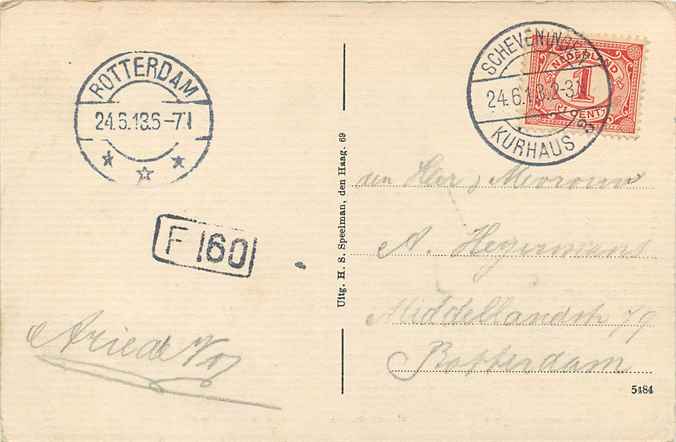 ROTTERDAM
24.6.13.6-7.N
F 160
Arie de Vos
Uitg. H. S. Speelman, den Haag. 69
SCHEVENINGEN
24.6.13.2-3.N
KURHAUS
NEDERLAND
1
CENT
den Heer, Mevrouw
A. Hegermans
Middellandstr 79
Rotterdam
5484